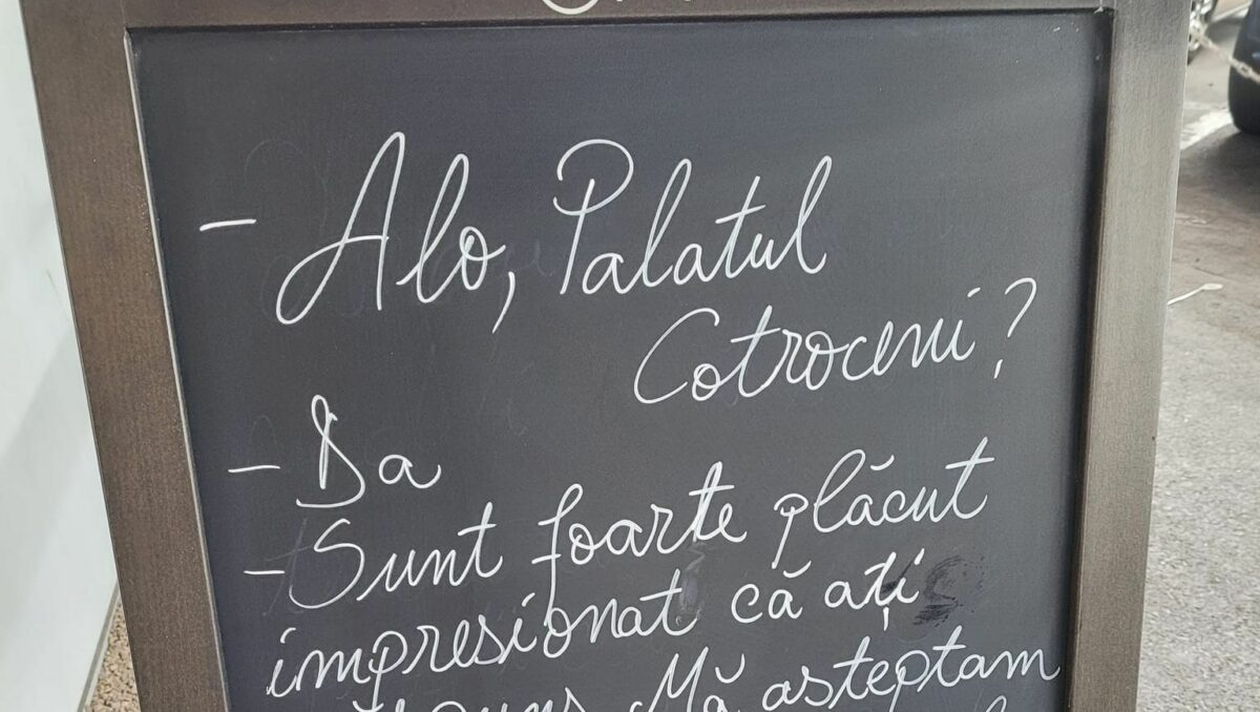 - Alo, Palatul
Cotroceni?
- Da
- Sunt foarte plăcut
impresionat că ați
Mă asteptam